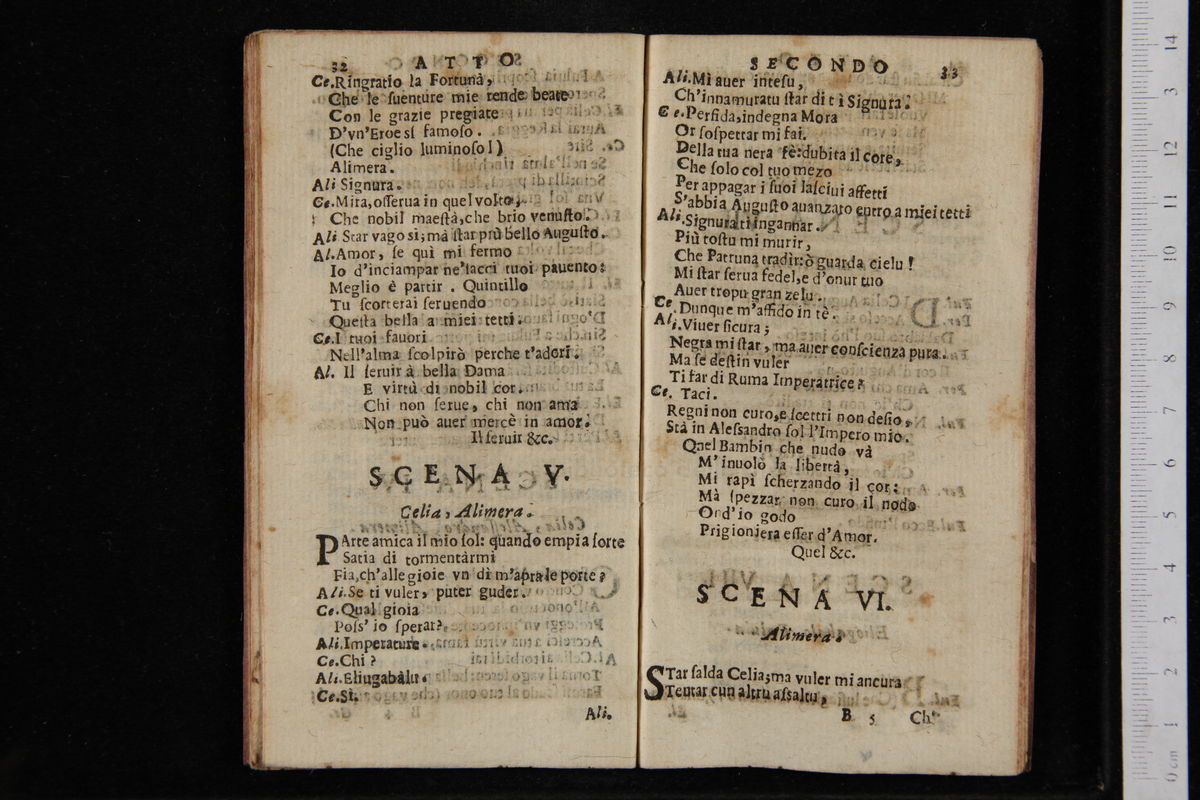 32 ATTO
Ce.Ringratio la Fortuna,
Che le ſuenture mie rende beate
Con le grazie pregiate
D'vn'Eroe sì famoſo.
(Che ciglio luminoſo!)
Alimera.
Ali Signura.
Ce.Mira, oſſerua in quel volto,
Che nobil maeſtà, che brio venuſto!
Ali Star vago si; mà ſtar più bello Auguſto.
Al.Amor, ſe quì mi fermo
Io d'inciampar ne'lacci tuoi pauento:
Meglio è partir. Quintillo
Tu ſcorterai ſeruendo
Queſta bella a miei tetti.
Ce.I tuoi fauori
Nell'alma ſcolpirò perche t'adori.
Al. Il ſeruir à bella Dama
E virtù di nobil cor.
Chi non ſerue, chi non ama
Non può auer mercè in amor.
Il ſeruir &c.
SCENA V.
Celia, Alimera.
PArte amica il mio ſol: quando empia ſorte
Satia di tormentàrmi
Fia, ch'alle gioie vn dì m'apra le porte?
Ali.Se ti vuler, puter guder.
Ce.Qual gioia
Poſs' io ſperar?
Ali.Imperature.
Ce.Chi?
Ali.Eliugabalu.
Ce.Sì.
Ali.
SECONDO 33
Ali.Mì auer inteſu,
Ch'innamuratu ſtar di tì Signura.
Ce.Perfida, indegna Mora
Or ſoſpettar mi fai.
Della tua nera fè: dubita il core,
Che ſolo col tuo mezo
Per appagar i ſuoi laſciui affetti
S'abbia Auguſto auanzato entro a miei tetti
Ali.Signura ti ingannar.
Più toſtu mi murir,
Che Patruna tradir: ò guarda cielu!
Mi ſtar ſerua fedel, e d'onur tuo
Auer tropu gran zelu.
Ce.Dunque m'affido in tè.
Ali.Viuer ſicura;
Negra mi ſtar, ma auer conſcienza pura.
Ma ſe deſtin vuler
Ti far di Ruma Imperatrice?
Ce. Taci.
Regni non curo, e ſcettri non deſio,
Stà in Aleſſandro ſol l'Impero mio.
Quel Bambin che nudo và
M'inuolò la libertà,
Mi rapì ſcherzando il cor:
Mà ſpezzar non curo il nodo
Or d'io godo
Prigioniera eſſer d'Amor.
Quel &c.
SCENA VI.
Alimera.
STar ſalda Celia; ma vuler mi ancura
Tentar cun altru aſſaltu,
B 5 Ch'
14
13
12
11
10
9
8
7
6
5
4
3
2
1
0 cm